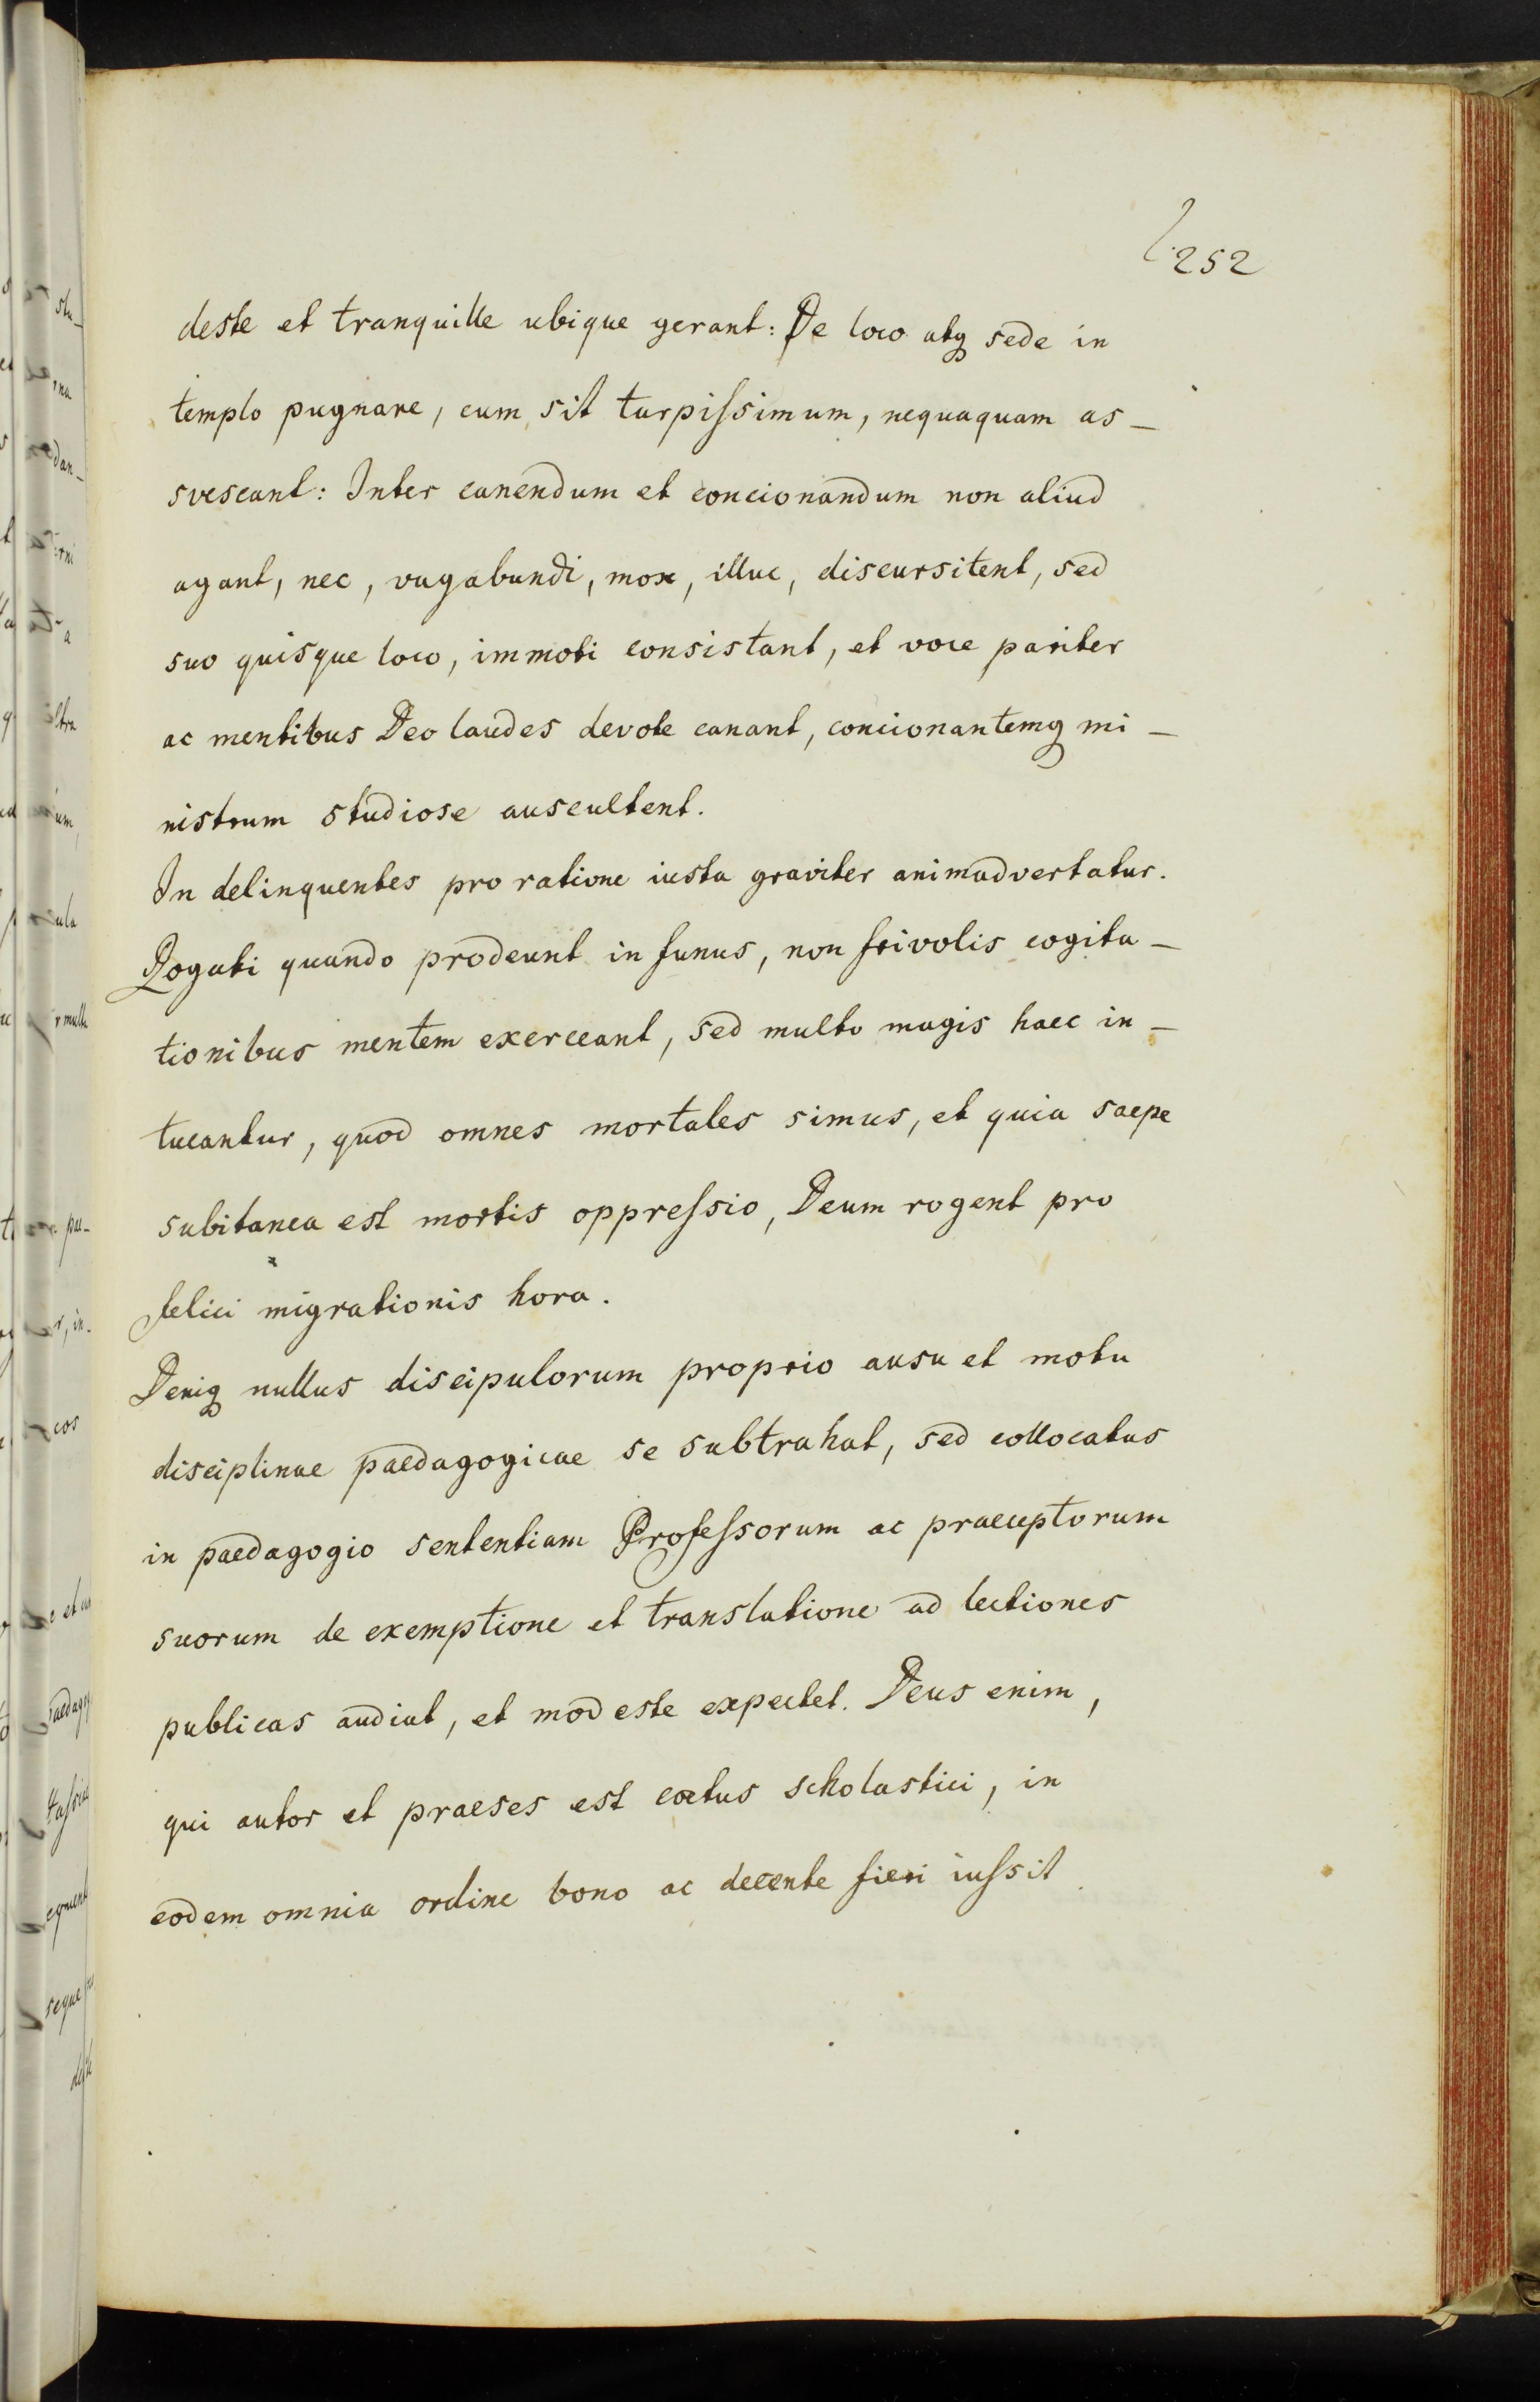 252
deste et tranquille ubique gerant: De loco atq sede in
templo pugnare, cum sit turpiſsimum, nequaquam as_
svescant: Inter canendum et concionandum non aliud
agant, nec, vagabundi, mox, illuc, discursitent, sed
suo quisque loco, immoti consistant, et voce pariter
ac mentibus Deo laudes devote canant, concionantemq mi_
nistrum studiose auscultent.
In delinquentes pro ratione iusta graviter animadvertatur.
Rogati quando prodeunt in funus, non frivolis cogita_
tionibus mentem exerceant, sed multo magis haec in_
tueantur, quod omnes mortales simus, et quia saepe
subitanea est mortis oppreſsio, Deum rogent pro
felici migrationis hora.
Deniq nullus discipulorum proprio ausu et motu
disciplinae paedagogicae se subtrahat, sed collocatus
in paedagogio sententiam Profeſsorum ac praeceptorum
suorum de exemptione et translatione ad lectiones
publicas audiat, et modeste expectet. Deus enim,
qui autor et praeses est coetus scholastici, in
eodem omnia ordine bono ac decente fieri iuſsit